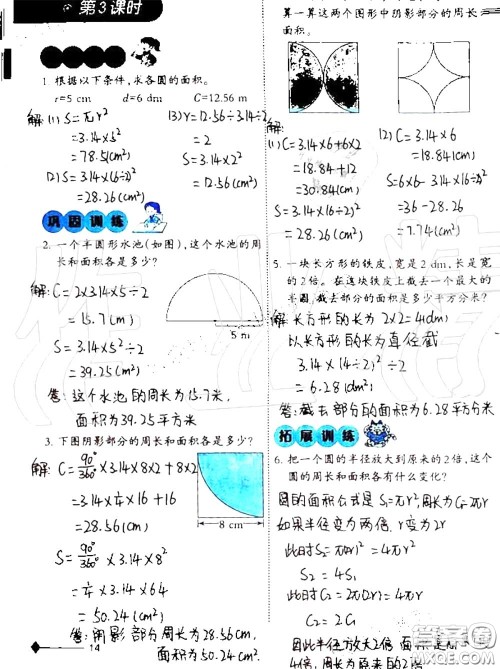 第3课时
1. 根据以下条件，求各圆的面积。
r=5 cm d=6 dm C=12.56 m
解：(1) S=πr²
=3.14×5²
=78.5(cm²)
(2) S=3.14×(6÷2)²
=28.26(cm²)
(3) r=12.56÷3.14÷2
=2
S=3.14×2²
=12.56(cm²)
巩固训练
2. 一个半圆形水池(如图)，这个水池的周
长和面积各是多少？
解：C=2×3.14×5÷2
=15.7(cm)
S=3.14×5²÷2
=39.25(cm²)
5 m
答：这个水池的周长为15.7米，
面积为39.25平方米
3. 下图阴影部分的周长和面积各是多少？
解：C=90°/360°×3.14×8×2+8×2
=3.14×1/4×16+16
=28.56(cm)
S=90°/360°×3.14×8²
=1/4×3.14×8²
=50.24(cm²)
8 cm
答：阴影部分周长为28.56cm，
面积为50.24cm².
14
算一算这两个图形中阴影部分的周长
面积。
解：(1) C=3.14×6+6×2
=18.84+12
=30.84(cm)
S=3.14×(6÷2)²
=28.26(cm²)
(2) C=3.14×6
=18.84(cm)
S=6×6-3.14×(6÷2)²
=7.74(cm²)
5. 一块长方形的铁皮，宽是2 dm，长是宽
的2倍。在这块铁皮上截去一个最大的
半圆，截去部分的面积是多少平方分米？
解：长方形的长为2×2=4(dm)
以长方形的长为直径截
3.14×(4÷2)²÷2
=6.28(dm²)
答：截去部分的面积为6.28平方分米
拓展训练
6. 把一个圆的半径放大到原来的2倍，这个
圆的周长和面积各有什么变化？
圆的面积公式是S=πr²，周长为C=2πr
如果半径变为两倍，r变为2r
此时S₂=π(2r)²=4πr²
S₂=4S₁
此时C₂=2π(2r)=4πr
C₂=2C₁
因此半径放大2倍
答案圈
MXQE.COM